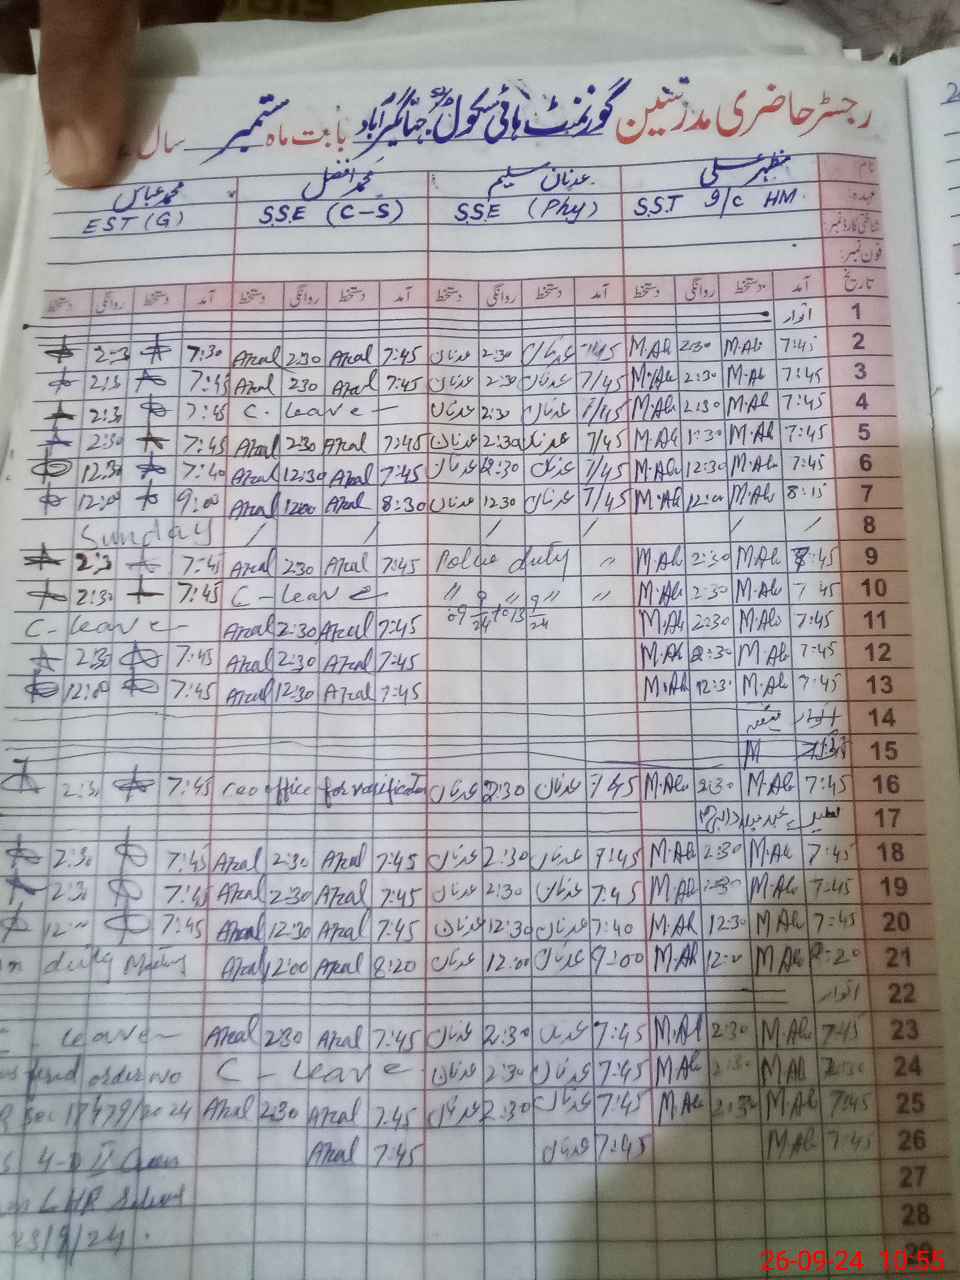 رجسٹر حاضری مدرسین گورنمنٹ ہائی سکول جہانگیرآباد بابت ماہ ستمبر سال
نام مظہر علی عدنان سلیم محمد افضل محمد عباس
عہدہ: S.S.T I/C HM. SSE (Phy) S.S.E (C-S) EST (G)
شناختی کارڈ نمبر:
فون نمبر:
تاریخ آمد دستخط روانگی دستخط آمد دستخط روانگی دستخط آمد دستخط روانگی دستخط آمد دستخط روانگی دستخط
1 اتوار
2 7:45 M.Ali 2:30 M.Ali 7/45 عدنان 2:30 عدنان 7:45 Afzal 2:30 Afzal 7:30 2:3
3 7:45 M.Ali 2:30 M.Ali 7/45 عدنان 2:30 عدنان 7:45 Afzal 230 Afzal 7:45 2:3
4 7:45 M.Ali 2:30 M.Ali 7/45 عدنان 2:30 عدنان C. Leave 7:45 2:3
5 7:45 M.Ali 1:30 M.Ali 7/45 عدنان 2:30 عدنان 7:45 Afzal 2:30 Afzal 7:45 2:30
6 7:45 M.Ali 12:30 M.Ali 7/45 عدنان 12:30 عدنان 7:45 Afzal 12:30 Afzal 7:40 12:30
7 8:15 M.Ali 12:00 M.Ali 7/45 عدنان 12:30 عدنان 8:30 Afzal 1200 Afzal 9:00 12:00
8 / / / / / / Sunday
9 :45 M.Ali 2:30 M.Ali Police duty " 7:45 Afzal 230 Afzal 7:45 2:3
10 7 45 M.Ali 2:30 M.Ali " " " C - Leave 7:45 2:30
11 7:45 M.Ali 2:30 M.Ali 09 9/24 to 13 9/24 7:45 Afzal 2:30 Afzal C- Leave
12 7:45 M.Ali 2:30 M.Ali 7:45 Afzal 2:30 Afzal 7:45 2:30
13 7:45 M.Ali 12:3 M.Ali 7:45 Afzal 12:30 Afzal 7:45 12:00
14
15 M
16 7:45 M.Ali 2:30 M.Ali 7/45 عدنان 2:30 عدنان ceo office for verification 7:45 2:3
17 عید میلاد النبی
18 7:45 M.Ali 2:30 M.Ali 7:45 عدنان 2:30 عدنان 7:45 Afzal 2:30 Afzal 7:45 2:30
19 7:45 M.Ali 2:30 M.Ali 7:45 عدنان 2:30 عدنان 7:45 Afzal 2:30 Afzal 7:45 2:3
20 7:45 M Ali 12:30 M.Ali 7:40 عدنان 12:30 عدنان 7:45 Afzal 12:30 Afzal 7:45 12
21 8:20 M Ali 12:0 M.Ali 9:00 عدنان 12:00 عدنان 8:20 Afzal 12:00 Afzal duty Meeting
22 اتوار
23 7:45 M.Ali 2:30 M.Ali 7:45 عدنان 2:30 عدنان 7:45 Afzal 2:30 Afzal Leave
24 M.Ali 2:30 M.Ali 7:45 عدنان 2:30 عدنان C - Leave order no
25 7:45 M.Ali 2:30 M.Ali 7:45 عدنان 2:30 عدنان 7.45 Afzal 2:30 Afzal 17479/2024
26 7:45 M.Ali 7:45 عدنان 7:45 Afzal
27 LHR
28 23/9/24.
29
26-09-24 10:55